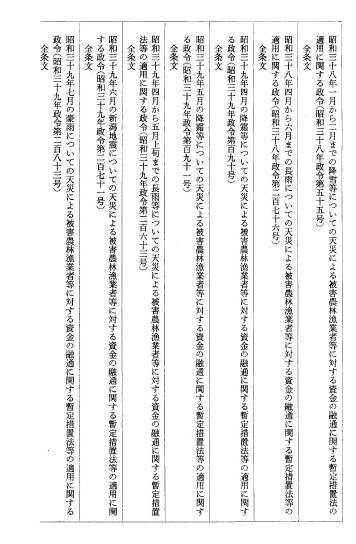 昭和三十八年一月から二月までの降雪等についての天災による被害農林漁業者等に対する資金の融通に関する暫定措置法等の
適用に関する政令(昭和三十八年政令第五十五号)
全条文
昭和三十八年四月から六月までの長雨についての天災による被害農林漁業者等に対する資金の融通に関する暫定措置法等の
適用に関する政令(昭和三十八年政令第二百七十六号)
全条文
昭和三十九年四月の降霜等についての天災による被害農林漁業者等に対する資金の融通に関する暫定措置法等の適用に関す
る政令(昭和三十九年政令第百九十号)
全条文
昭和三十九年五月の降霜等についての天災による被害農林漁業者等に対する資金の融通に関する暫定措置法等の適用に関す
る政令(昭和三十九年政令第百九十一号)
全条文
昭和三十九年四月から五月上旬までの長雨等についての天災による被害農林漁業者等に対する資金の融通に関する暫定措置
法等の適用に関する政令(昭和三十九年政令第二百六十三号)
全条文
昭和三十九年六月の新潟地震についての天災による被害農林漁業者等に対する資金の融通に関する暫定措置法等の適用に関
する政令(昭和三十九年政令第二百七十一号)
全条文
昭和三十九年七月の豪雨についての天災による被害農林漁業者等に対する資金の融通に関する暫定措置法等の適用に関する
政令(昭和三十九年政令第二百八十三号)
全条文